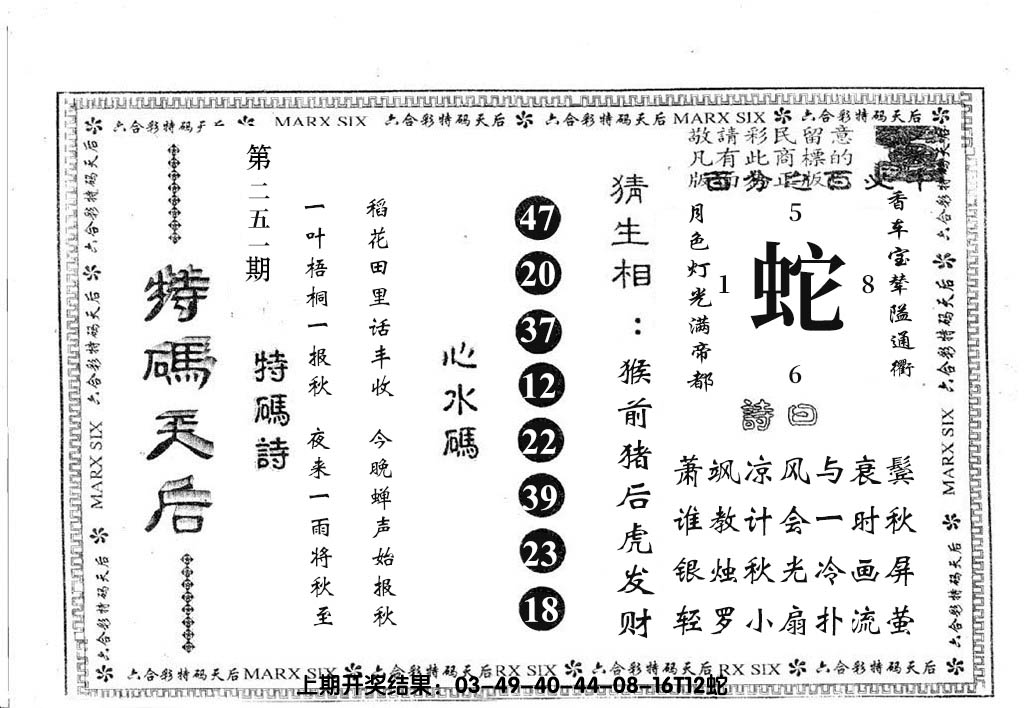 六合彩特码天后 MARX SIX 六合彩特码天后 六合彩特码天后 MARX SIX 六合彩特码天后
敬請彩民留意
凡有此商標的
香车宝辇隘通衢
月色灯光满帝都
5
1 蛇 8
6
詩曰
萧飒凉风与衰鬓
谁教计会一时秋
银烛秋光冷画屏
轻罗小扇扑流萤
猜生相：猴前猪后虎发财
47
20
37
12
22
39
23
18
心水碼
稻花田里话丰收 今晚蝉声始报秋
一叶梧桐一报秋 夜来一雨将秋至
特碼詩
第二五一期
特碼天后
六合彩特码天后 六合彩特码天后 MARX SIX 六合彩特码天后
六合彩特码天后 六合彩特码天后 MARX SIX 六合彩特码天后
六合彩特码天后 MARX SIX 六合彩特码天后 RX SIX 六合彩特码天后 RX SIX 六合彩特码天后
上期开奖结果：03-49-40-44-08-16T12蛇